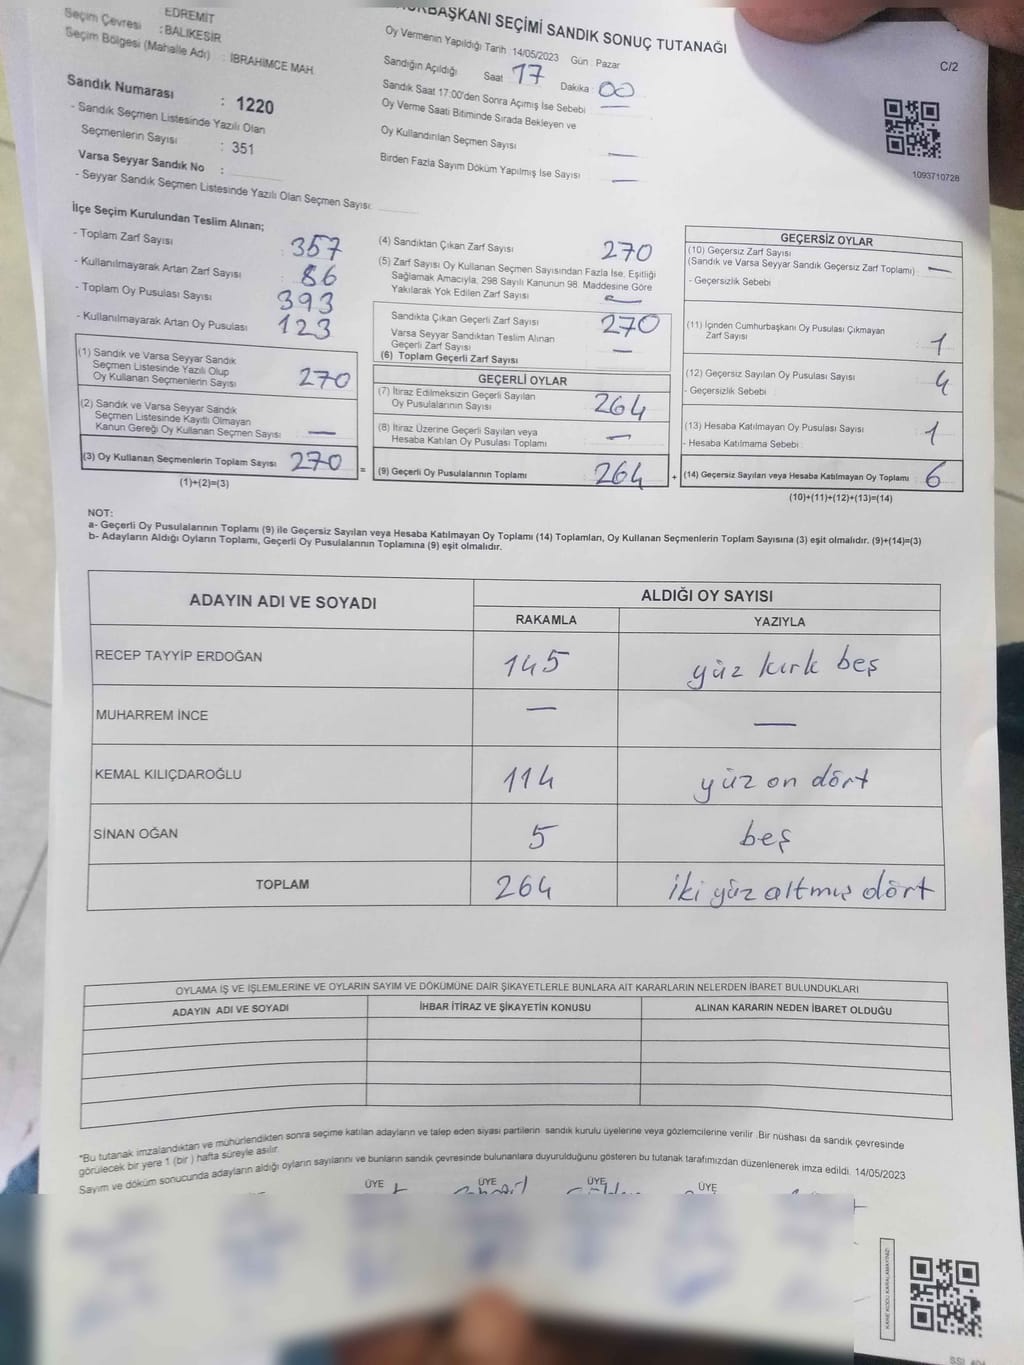 EDREMİT
Seçim Çevresi : BALIKESİR
Seçim Bölgesi (Mahalle Adı) : İBRAHİMCE MAH.
Sandık Numarası : 1220
- Sandık Seçmen Listesinde Yazılı Olan
Seçmenlerin Sayısı : 351
Varsa Seyyar Sandık No :
- Seyyar Sandık Seçmen Listesinde Yazılı Olan Seçmen Sayısı:
BAŞKANI SEÇİMİ SANDIK SONUÇ TUTANAĞI
Oy Vermenin Yapıldığı Tarih 14/05/2023 Gün : Pazar
Sandığın Açıldığı Saat 17 Dakika 00
Sandık Saat 17:00'den Sonra Açımış İse Sebebi —
Oy Verme Saati Bitiminde Sırada Bekleyen ve
Oy Kullandırılan Seçmen Sayısı —
Birden Fazla Sayım Döküm Yapılmış İse Sayısı —
C/2
1093710728
İlçe Seçim Kurulundan Teslim Alınan;
- Toplam Zarf Sayısı : 357
- Kullanılmayarak Artan Zarf Sayısı : 86
- Toplam Oy Pusulası Sayısı 393
- Kullanılmayarak Artan Oy Pusulası 123
(1) Sandık ve Varsa Seyyar Sandık
Seçmen Listesinde Yazılı Olup
Oy Kullanan Seçmenlerin Sayısı 270
(2) Sandık ve Varsa Seyyar Sandık
Seçmen Listesinde Kayıtlı Olmayan
Kanun Gereği Oy Kullanan Seçmen Sayısı —
(3) Oy Kullanan Seçmenlerin Toplam Sayısı 270
(1)+(2)=(3)
=
(4) Sandıktan Çıkan Zarf Sayısı 270
(5) Zarf Sayısı Oy Kullanan Seçmen Sayısından Fazla İse, Eşitliği
Sağlamak Amacıyla, 298 Sayılı Kanunun 98. Maddesine Göre
Yakılarak Yok Edilen Zarf Sayısı —
Sandıkta Çıkan Geçerli Zarf Sayısı 270
Varsa Seyyar Sandıktan Teslim Alınan
Geçerli Zarf Sayısı —
(6) Toplam Geçerli Zarf Sayısı
GEÇERLİ OYLAR
(7) İtiraz Edilmeksizin Geçerli Sayılan
Oy Pusulalarının Sayısı 264
(8) İtiraz Üzerine Geçerli Sayılan veya
Hesaba Katılan Oy Pusulası Toplamı —
(9) Geçerli Oy Pusulalarının Toplamı 264
+
GEÇERSİZ OYLAR
(10) Geçersiz Zarf Sayısı
(Sandık ve Varsa Seyyar Sandık Geçersiz Zarf Toplamı) —
- Geçersizlik Sebebi
(11) İçinden Cumhurbaşkanı Oy Pusulası Çıkmayan
Zarf Sayısı : 1
(12) Geçersiz Sayılan Oy Pusulası Sayısı : 4
- Geçersizlik Sebebi
(13) Hesaba Katılmayan Oy Pusulası Sayısı : 1
- Hesaba Katılmama Sebebi
(14) Geçersiz Sayılan veya Hesaba Katılmayan Oy Toplamı : 6
(10)+(11)+(12)+(13)=(14)
NOT:
a- Geçerli Oy Pusulalarının Toplamı (9) ile Geçersiz Sayılan veya Hesaba Katılmayan Oy Toplamı (14) Toplamları, Oy Kullanan Seçmenlerin Toplam Sayısına (3) eşit olmalıdır. (9)+(14)=(3)
b- Adayların Aldığı Oyların Toplamı, Geçerli Oy Pusulalarının Toplamına (9) eşit olmalıdır.
ADAYIN ADI VE SOYADI ALDIĞI OY SAYISI
RAKAMLA YAZIYLA
RECEP TAYYİP ERDOĞAN 145 yüz kırk beş
MUHARREM İNCE — —
KEMAL KILIÇDAROĞLU 114 yüz on dört
SİNAN OĞAN 5 beş
TOPLAM 264 iki yüz altmış dört
OYLAMA İŞ VE İŞLEMLERİNE VE OYLARIN SAYIM VE DÖKÜMÜNE DAİR ŞİKAYETLERLE BUNLARA AİT KARARLARIN NELERDEN İBARET BULUNDUKLARI
ADAYIN ADI VE SOYADI İHBAR İTİRAZ VE ŞİKAYETİN KONUSU ALINAN KARARIN NEDEN İBARET OLDUĞU
*Bu tutanak imzalandıktan ve mühürlendikten sonra seçime katılan adayların ve talep eden siyasi partilerin sandık kurulu üyelerine veya gözlemcilerine verilir. Bir nüshası da sandık çevresinde
görülecek bir yere 1 (bir ) hafta süreyle asılır.
Sayım ve döküm sonucunda adayların aldığı oyların sayılarını ve bunların sandık çevresinde bulunanlara duyurulduğunu gösteren bu tutanak tarafımızdan düzenlenerek imza edildi. 14/05/2023
ÜYE ÜYE ÜYE ÜYE